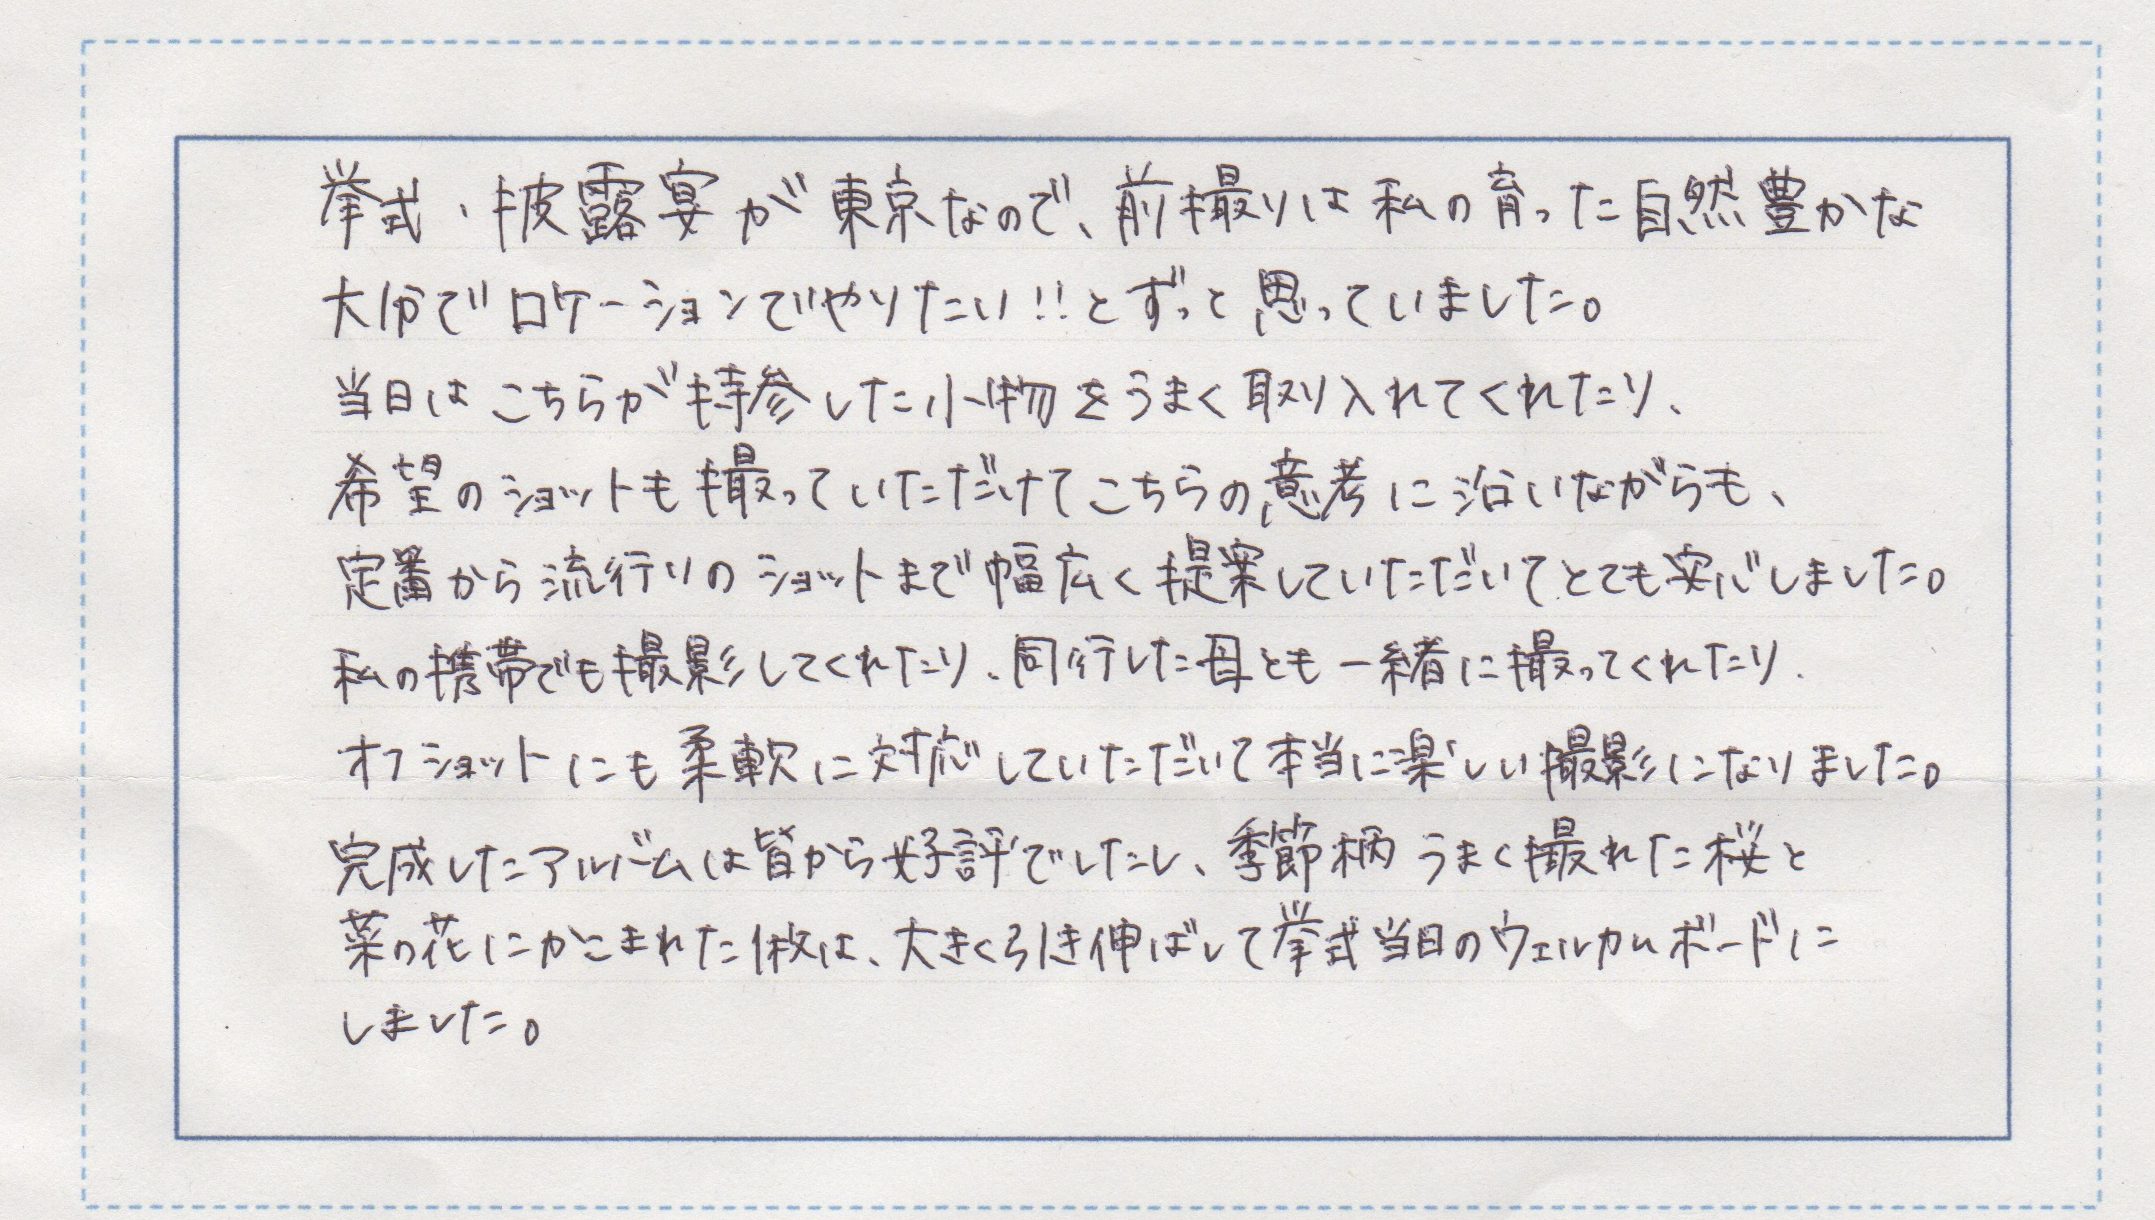 挙式、披露宴が東京なので、前撮りは私の育った自然豊かな
大分でロケーションでやりたい!!とずっと思っていました。
当日はこちらが持参した小物をうまく取り入れてくれたり、
希望のショットも撮っていただけてこちらの意考に沿いながらも、
定番から流行りのショットまで幅広く提案していただいてとても安心しました。
私の携帯でも撮影してくれたり、同行した母とも一緒に撮ってくれたり、
オフショットにも柔軟に対応していただいて本当に楽しい撮影になりました。
完成したアルバムは皆から好評でしたし、季節柄うまく撮れた桜と
菜の花にかこまれた1枚は、大きく引き伸ばして挙式当日のウェルカムボードに
しました。